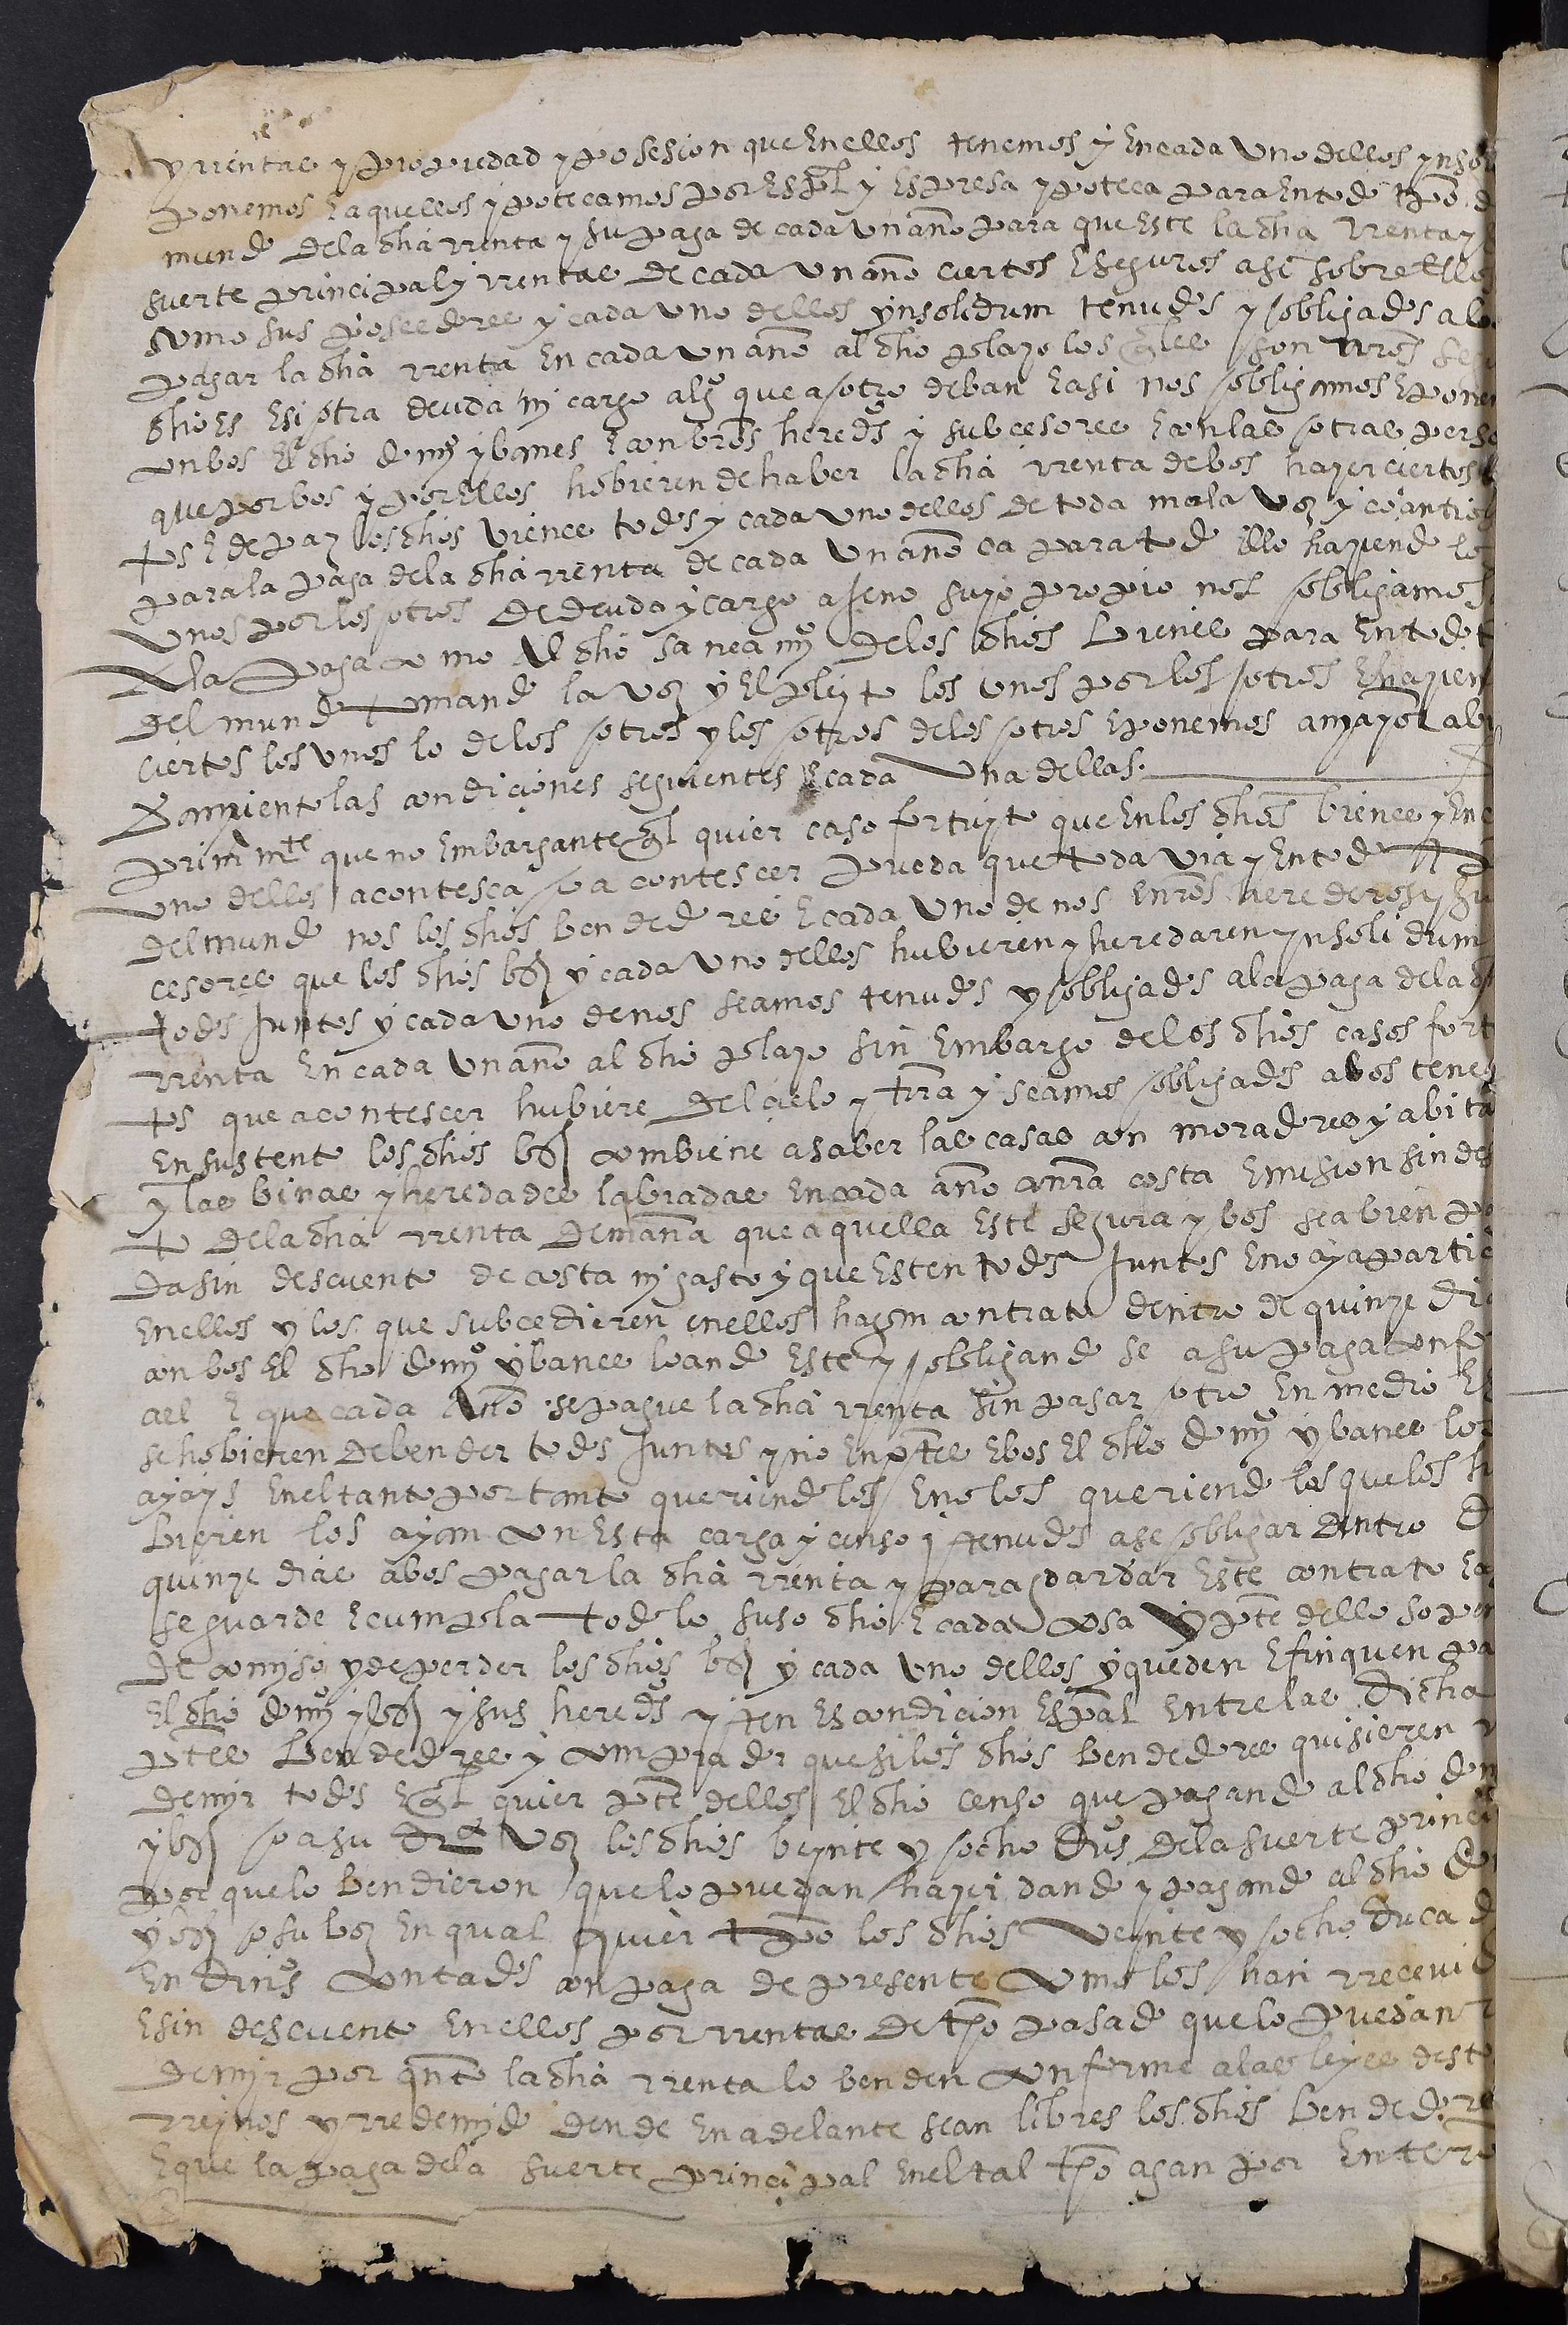 y rrentas y propiedad y posesion que en ellos tenemos y en cada uno dellos yn so
ponemos e aquellos ypotecamos por espl y espresa ypoteca para en todo tpo d
mundo de la dha rrenta y su paga de cada un año para que este la dha rrenta y
suerte principal y rrentas de cada un año ciertos e seguros asi sobre ellos
como sus poseedores y cada uno dellos ynsolidum tenudos y obligados a bo
pagar la dha rrenta en cada un año al dho plazo los qles son nros
dho es e si otra deuda ni cargo algº que a otro deban e asi nos obligamos e ponem
con bos el dho domyº ybanes e con bros heredºs y subcesores e con las otras perso
que por bos y por ellos hobieren de haber la dha rrenta de bos hazer ciertos
tos e de paz los dhos vienes todos y cada uno dellos de toda mala voz y
para la paga de la dha rrenta de cada un año ca para todo ello haziendo lo
unos por los otros de deuda y cargo ajeno suyo propio nos obligamos
a la paga como al dho saneamyº de los dhos bienes para en todo t
del mundo tomando la voz y el pleyto los unos por los otros e hazien
ciertos los unos lo de los otros y los otros de los otros e ponemos a mayor ab
damiento las condiciones seguientes e cada una dellas
primmte que no embargante ql quier caso fortuyto que en los dhos bienes y en c
uno dellos acontesca o acontescer pueda que todavia y en todo tpo
del mundo nos los dhos bendedores e cada uno de nos e nros herederos y su
cesores que los dhos bs y cada uno dellos hubieren y heredaren ynsolidum
todos juntos y cada uno de nos seamos tenudos y obligados a la paga de la dh
rrenta en cada un año al dho plazo sin embargo de los dhos casos fort
tos que acontescer hubiere del cielo y trra y seamos obligados a bos tener
en sustento los dhos bs combiene a saber las casas con moradores y abita
y las binas y heredades labradas en cada año a nra costa e mision sin des
to de la dha rrenta de mana que aquella este segura y bos sea bien pa
da sin descuento de costa ni gasto y que esten todos juntos e no aya partici
en ellos y los que subcedieren en ellos hagan contrato dentro de quinze di
con bos el dho domyº ybanes loando este y obligando se a su paga conf
ael e que cada año se pague la dha rrenta sin pasar otro en medio e
se hobieren de bender todos juntos y no en ptes e bos el dho domyº ybanes los
ayays en el tanto por tanto queriendo los e no los queriendo los que los h
bieren los ayan con esta carga y censo y tenudos a se obligar dentro d
quinze dias a bos pagar la dha rrenta y para dar este contrato e a
se guarde e cumpla todo lo suso dho e cada cosa y pte dello so pen
de comiso y de perder los dhos bs y cada uno dellos y queden e finquen pa
el dho domyº ybs y sus heredºs yten es condicion espal entre las dicha
ptes bendedores y comprador que si los dhos bendedores quisieren r
demir todos e ql quier pte dellos el dho censo que pagando al dho dom
ybs o a su voz los dhos beynte y ocho dus de la suerte princi
por que lo bendieron que lo puedan hazer dando y pagando al dho do
ybs o su boz en qual quier tpo los dhos veinte y ocho ducad
en dinºs contados con paga de presente como los han rrecevid
e sin descuento en ellos por rrentas de tpo pasado que lo puedan r
demir por qnto la dha rrenta lo benden conforme a las leyes desto
rreinos y rredemido dende en adelante sean libres los dhos bendedores
e que la paga de la suerte principal en el tal tpo agan por entero